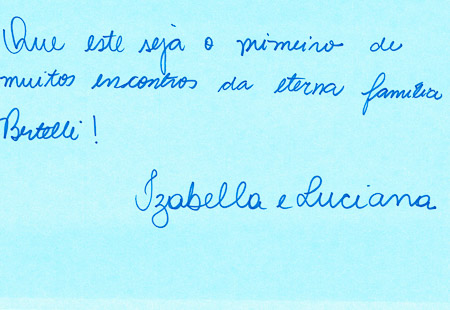 Que este seja o primeiro de
muitos encontros da eterna família
Bertelli!
Izabella e Luciana